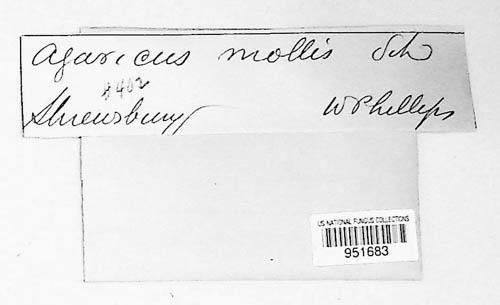 Agaricus mollis Sch
8402
Shrewsbury W Phillips
US NATIONAL FUNGUS COLLECTIONS
951683